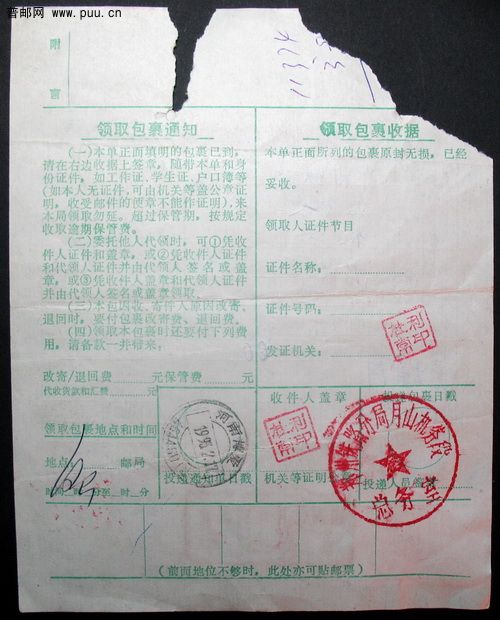 普邮网 www.puu.cn
附
言
领取包裹通知
(一)本单正面填明的包裹已到,
请在右边收据上签章,随带本单和身
份证件,如工作证、学生证、户口簿等
(如本人无证件,可由机关等盖公章证
明,收受邮件的便章不能作证明),来
本局领取勿延。超过保管期,按规定
收取逾期保管费。
(二)委托他人代领时,可①凭收
件人证件和盖章,或②凭收件人证件
和代领人证件并由代领人签名或盖
章,或③凭收件人盖章和代领人证件
并由代领人签名或盖章领取。
(三)本包因收、寄件人原因改寄、
退回时,要付包裹改寄费、退回费。
(四)领取本包裹时还要付下列费
用,请备款一并带来。
改寄/退回费 元保管费 元
代收货款和汇费 元
领取包裹地点和时间
地点: 邮局
时间: 时 分至 时 分
河南
投递通知单日戳
领取包裹收据
本单正面所列的包裹原封无损,已经
妥收。
领取人证件节目
证件名称:
证件号码:
发证机关:
利印
收件人盖章
投递包裹日戳
利印
机关等证明
投递人员盖章
分局月山机务段
总务室
(前面地位不够时,此处亦可贴邮票)